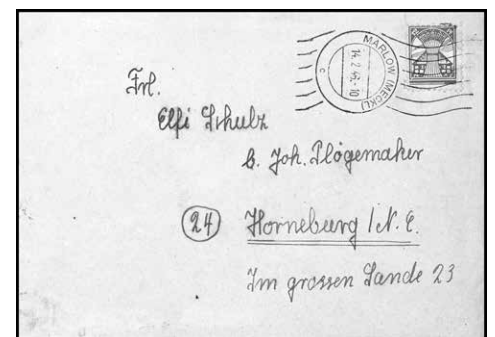 MARLOW (MECKL)
14.2.46.-10
c
Frl.
Elfi Schulz
b. Joh. Plögemaker
(24) Horneburg / N. E.
Im grossen Sande 23